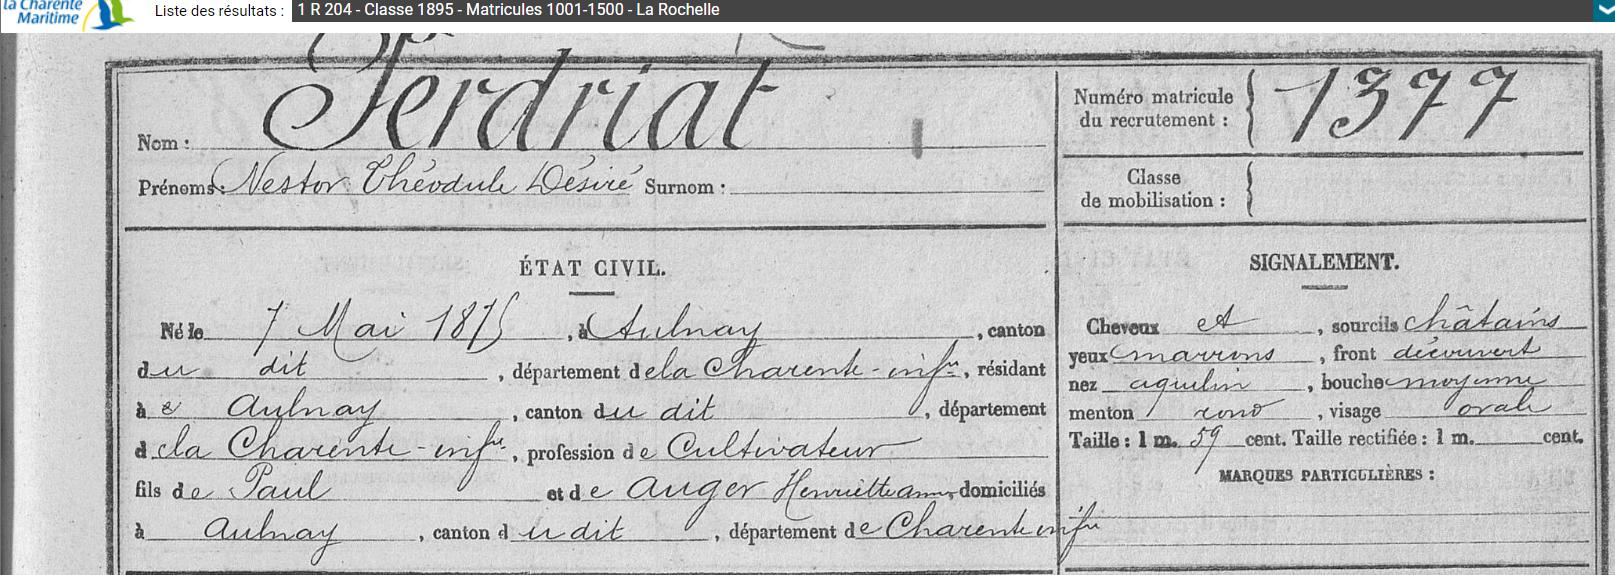 la Charente
Maritime
Liste des résultats : 1 R 204 - Classe 1895 - Matricules 1001-1500 - La Rochelle
Nom : Perdriat
Prénoms : Nestor Théodule Désiré Surnom :
Numéro matricule
du recrutement : 1377
Classe
de mobilisation :
ÉTAT CIVIL.
Né le 7 Mai 1875, à Aulnay, canton
du dit, département de la Charente-infre, résidant
à Aulnay, canton du dit, département
de la Charente-infre, profession de Cultivateur
fils de Paul et de Auger Henriette anne domiciliés
à Aulnay, canton du dit, département de Charente infre
SIGNALEMENT.
Cheveux et, sourcils châtains
yeux marrons, front découvert
nez aquilin, bouche moyenne
menton rond, visage ovale
Taille : 1 m. 59 cent. Taille rectifiée : 1 m. cent.
MARQUES PARTICULIÈRES :